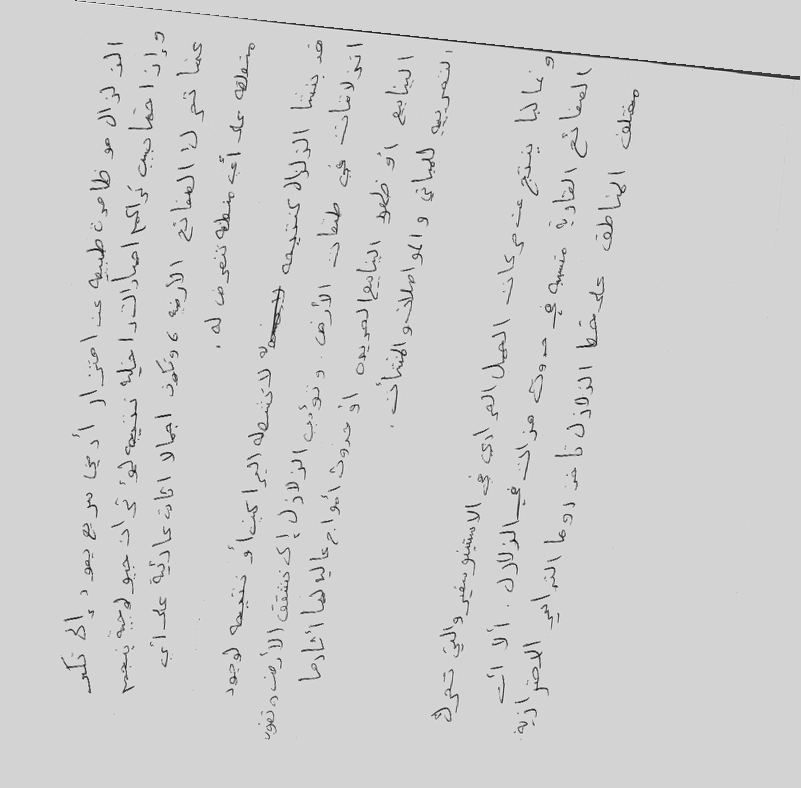 الزلزال هو ظاهرة طبيعية عن اهتزاز أرضي سريع يعود إلى تكسر
وإزاحة بسبب تراكم إجهادات داخلية نتيجة لمؤثرات جيولوجية ينجم
عنها تحرك الصفائح الأرضية، وتكون اجمالا اثاث كارثية على أي
منطقة على أي منطقة تتعرض له.
قد ينشأ الزلزال كنتيجة لانشطة البراكين أو نتيجة لوجود
انزلاقات في طبقات الأرض. وتؤدي الزلازل إلى تشقق الأرض ونضوب
الينابيع أو ظهور الينابيع الجديدة أو حدوث أمواج عالية لها أثارها
التخريبية للمباني والمواصلات والمنشآت.
وغالبا ينتج عن حركات الحمل الحراري في الاستينوسفير والتي تحرك
الصفائح القارية متسببة في حدوث هزات في الزلازل. ألا أن
مختلف المناطق على خط الزلازل تأخذ روطا التدابير الاحترازية.